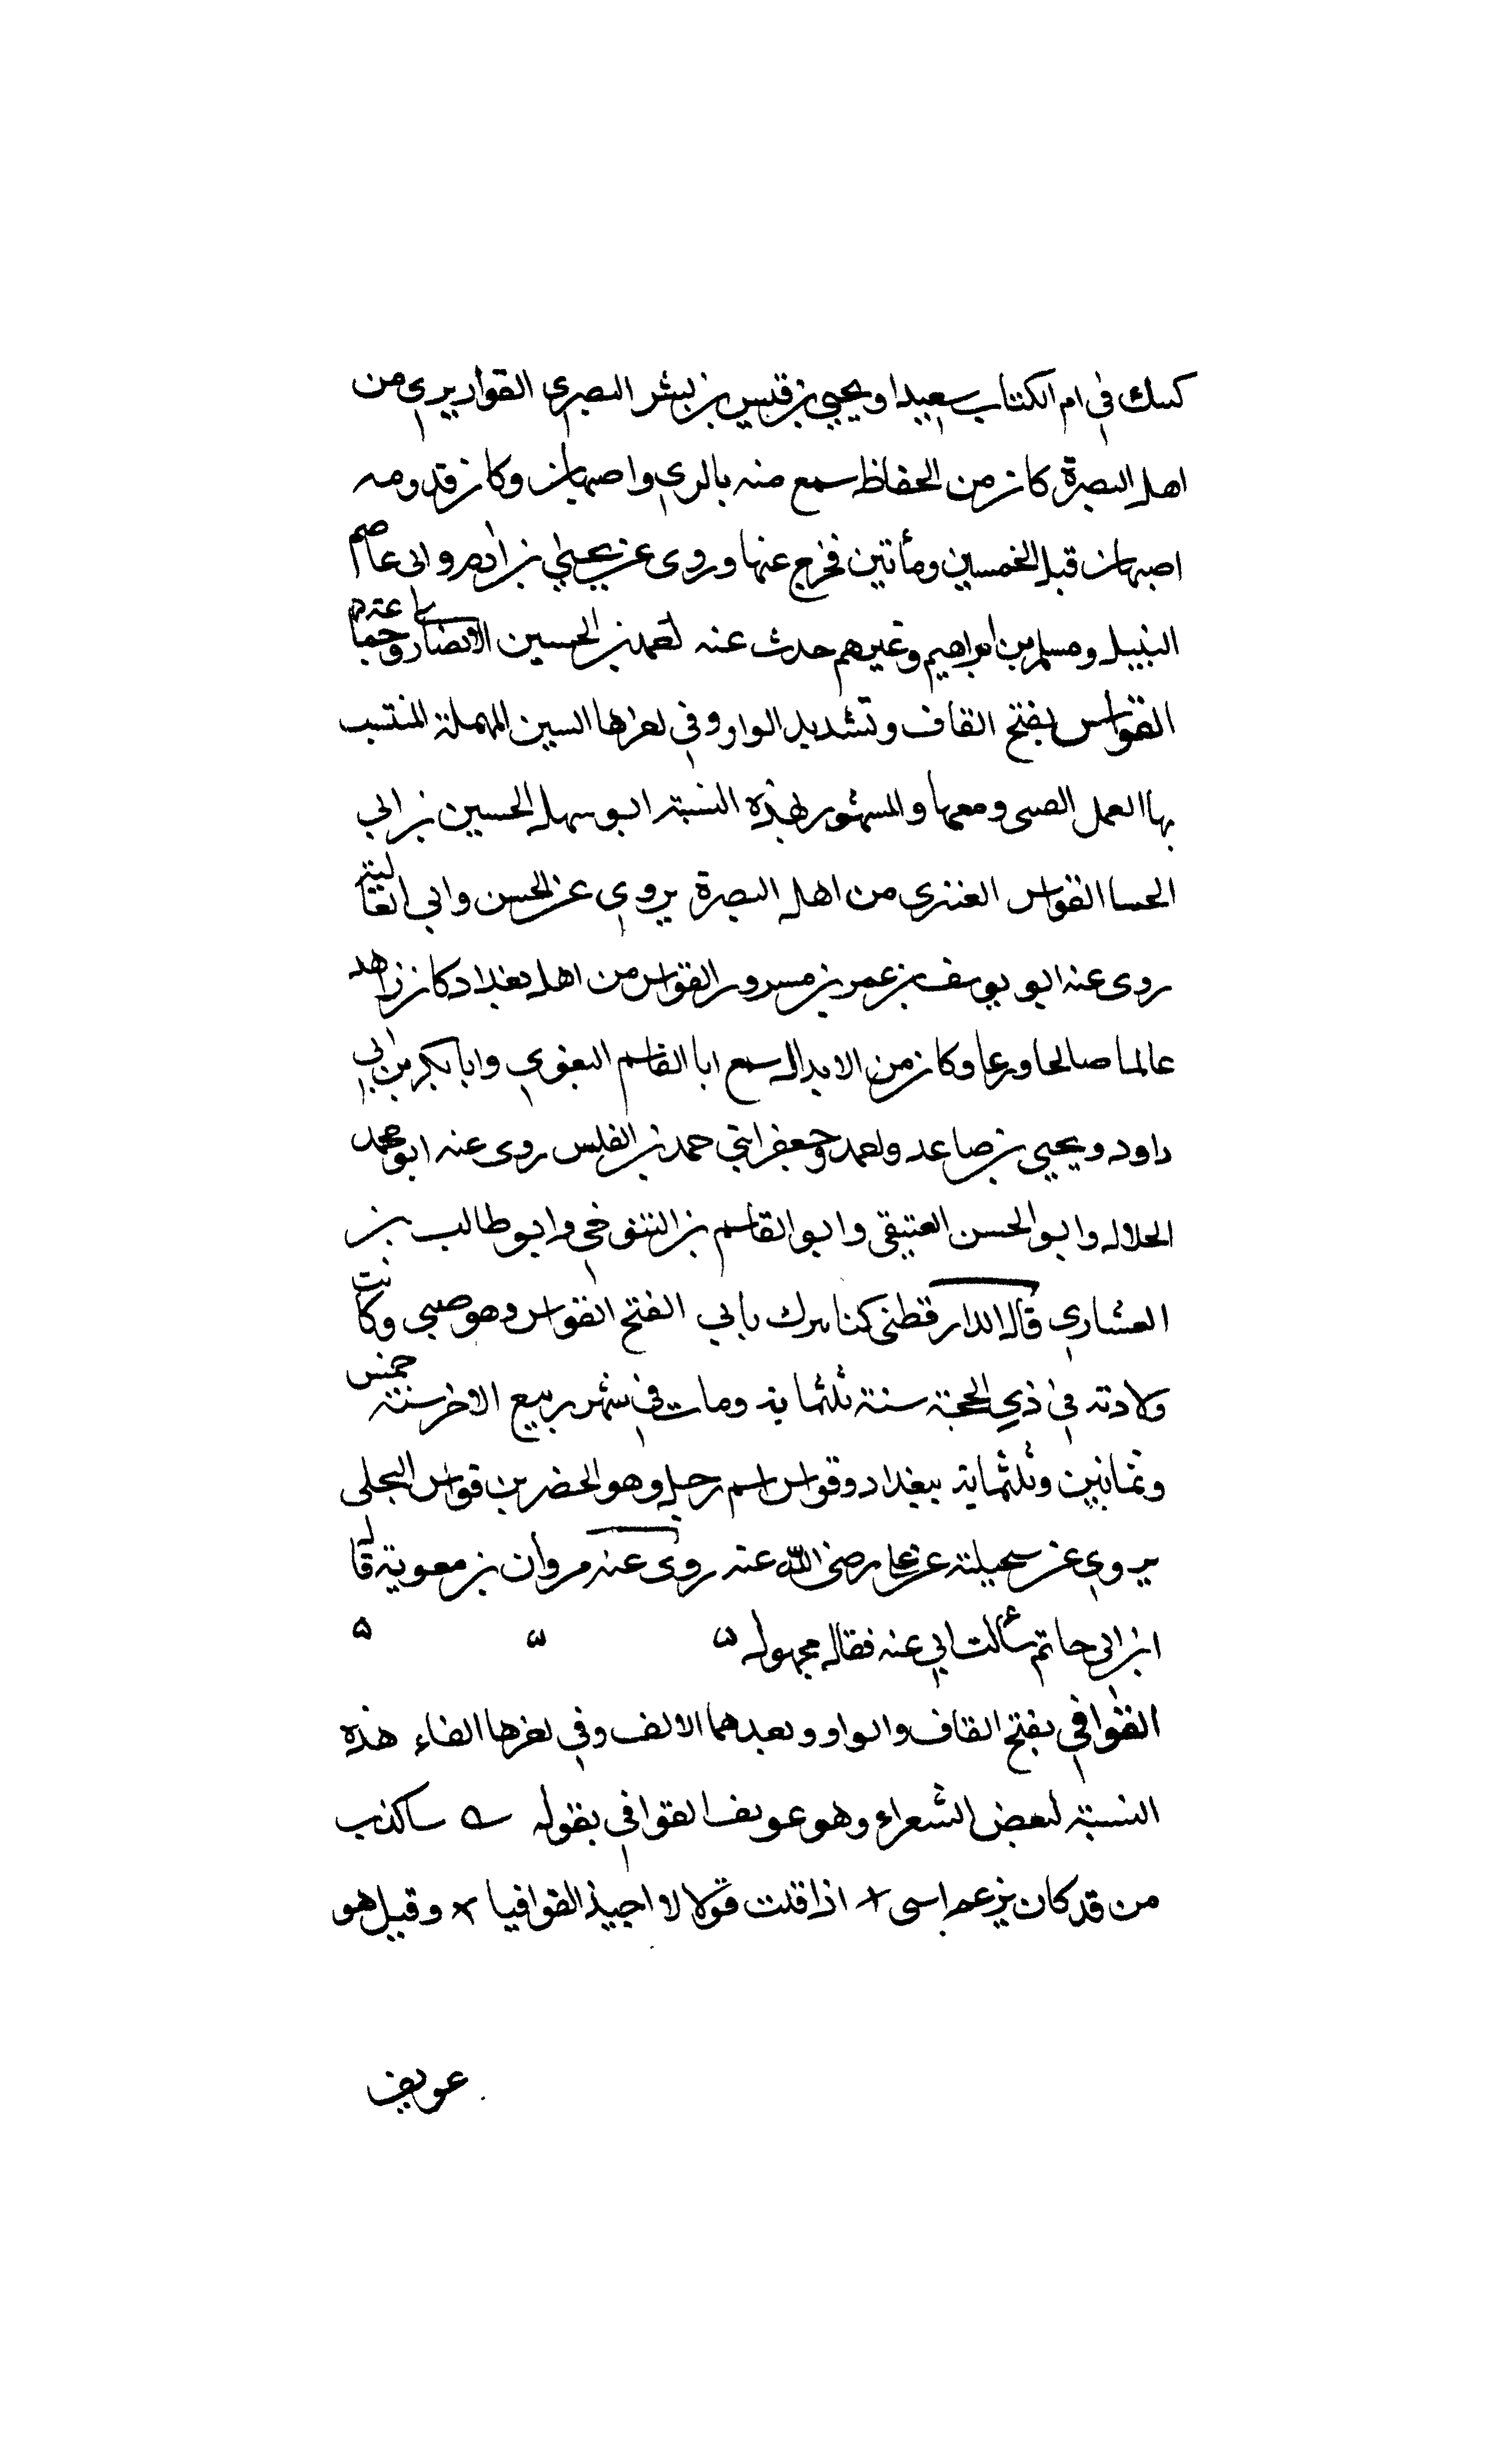 كسك في ام الكتاب سعيدا ويحيى بن قيس بن بشر البصري القواريري من
اهل البصرة كان من الحفاظ سمع منه بالري واصبهان وكان قدومه
اصبهان قبل الخمسين ومأتين فخرج عنها وروى عن يحيى بن ادم وابى عاصم
النبيل ومسلم بن ابراهيم وغيرهم حدث عنه احمد بن الحسين الانصاري وجماعة
القواس بفتح القاف وتشديد الواو وفي اخرها السين المهملة المنتسب
بها العمل القسي ومعها والمشهور بهذه النسبة ابو سهل الحسين بن ابي
الحسا القواس العنزي من اهل البصرة يروي عن الحسن وابي العالية
روى عنه ابو يوسف بن عمر بن مسرور القواس من اهل بغداد كان زاهد
عالما صالحا ورعا وكان من الابدال سمع ابا القاسم البغوي وابا بكر بن ابي
داود ويحيى بن صاعد واحمد وجعفر ابني حمد بن المفلس روى عنه ابو محمد
الخلال وابو الحسن العتيقي وابو القاسم بن التنوخي وابو طالب بن
العشاري قال الدارقطنى كنا نتبرك بابي الفتح القواس وهو صبي وكانت
ولادته في ذي الحجة سنة ثلثماية ومات في شهر ربيع الاخر سنة خمس
وثمانين وثلثماية ببغداد وقواس اسم رجل وهو الخضر بن قواس البجلى
يروي عن سحيلة عن علي رضى الله عنه روى عنه مروان بن معوية قال
ابن ابي حاتم سألت ابي عنه فقال مجهول
القوافي بفتح القاف والواو وبعدهما الالف وفي اخرها الفاء هذه
النسبة لبعض الشعراء وهو عويف القوافي بقوله ساكذب
من قد كان يزعم انني اذا قلت قولا لا اجيد القوافيا وقيل هو
عويف